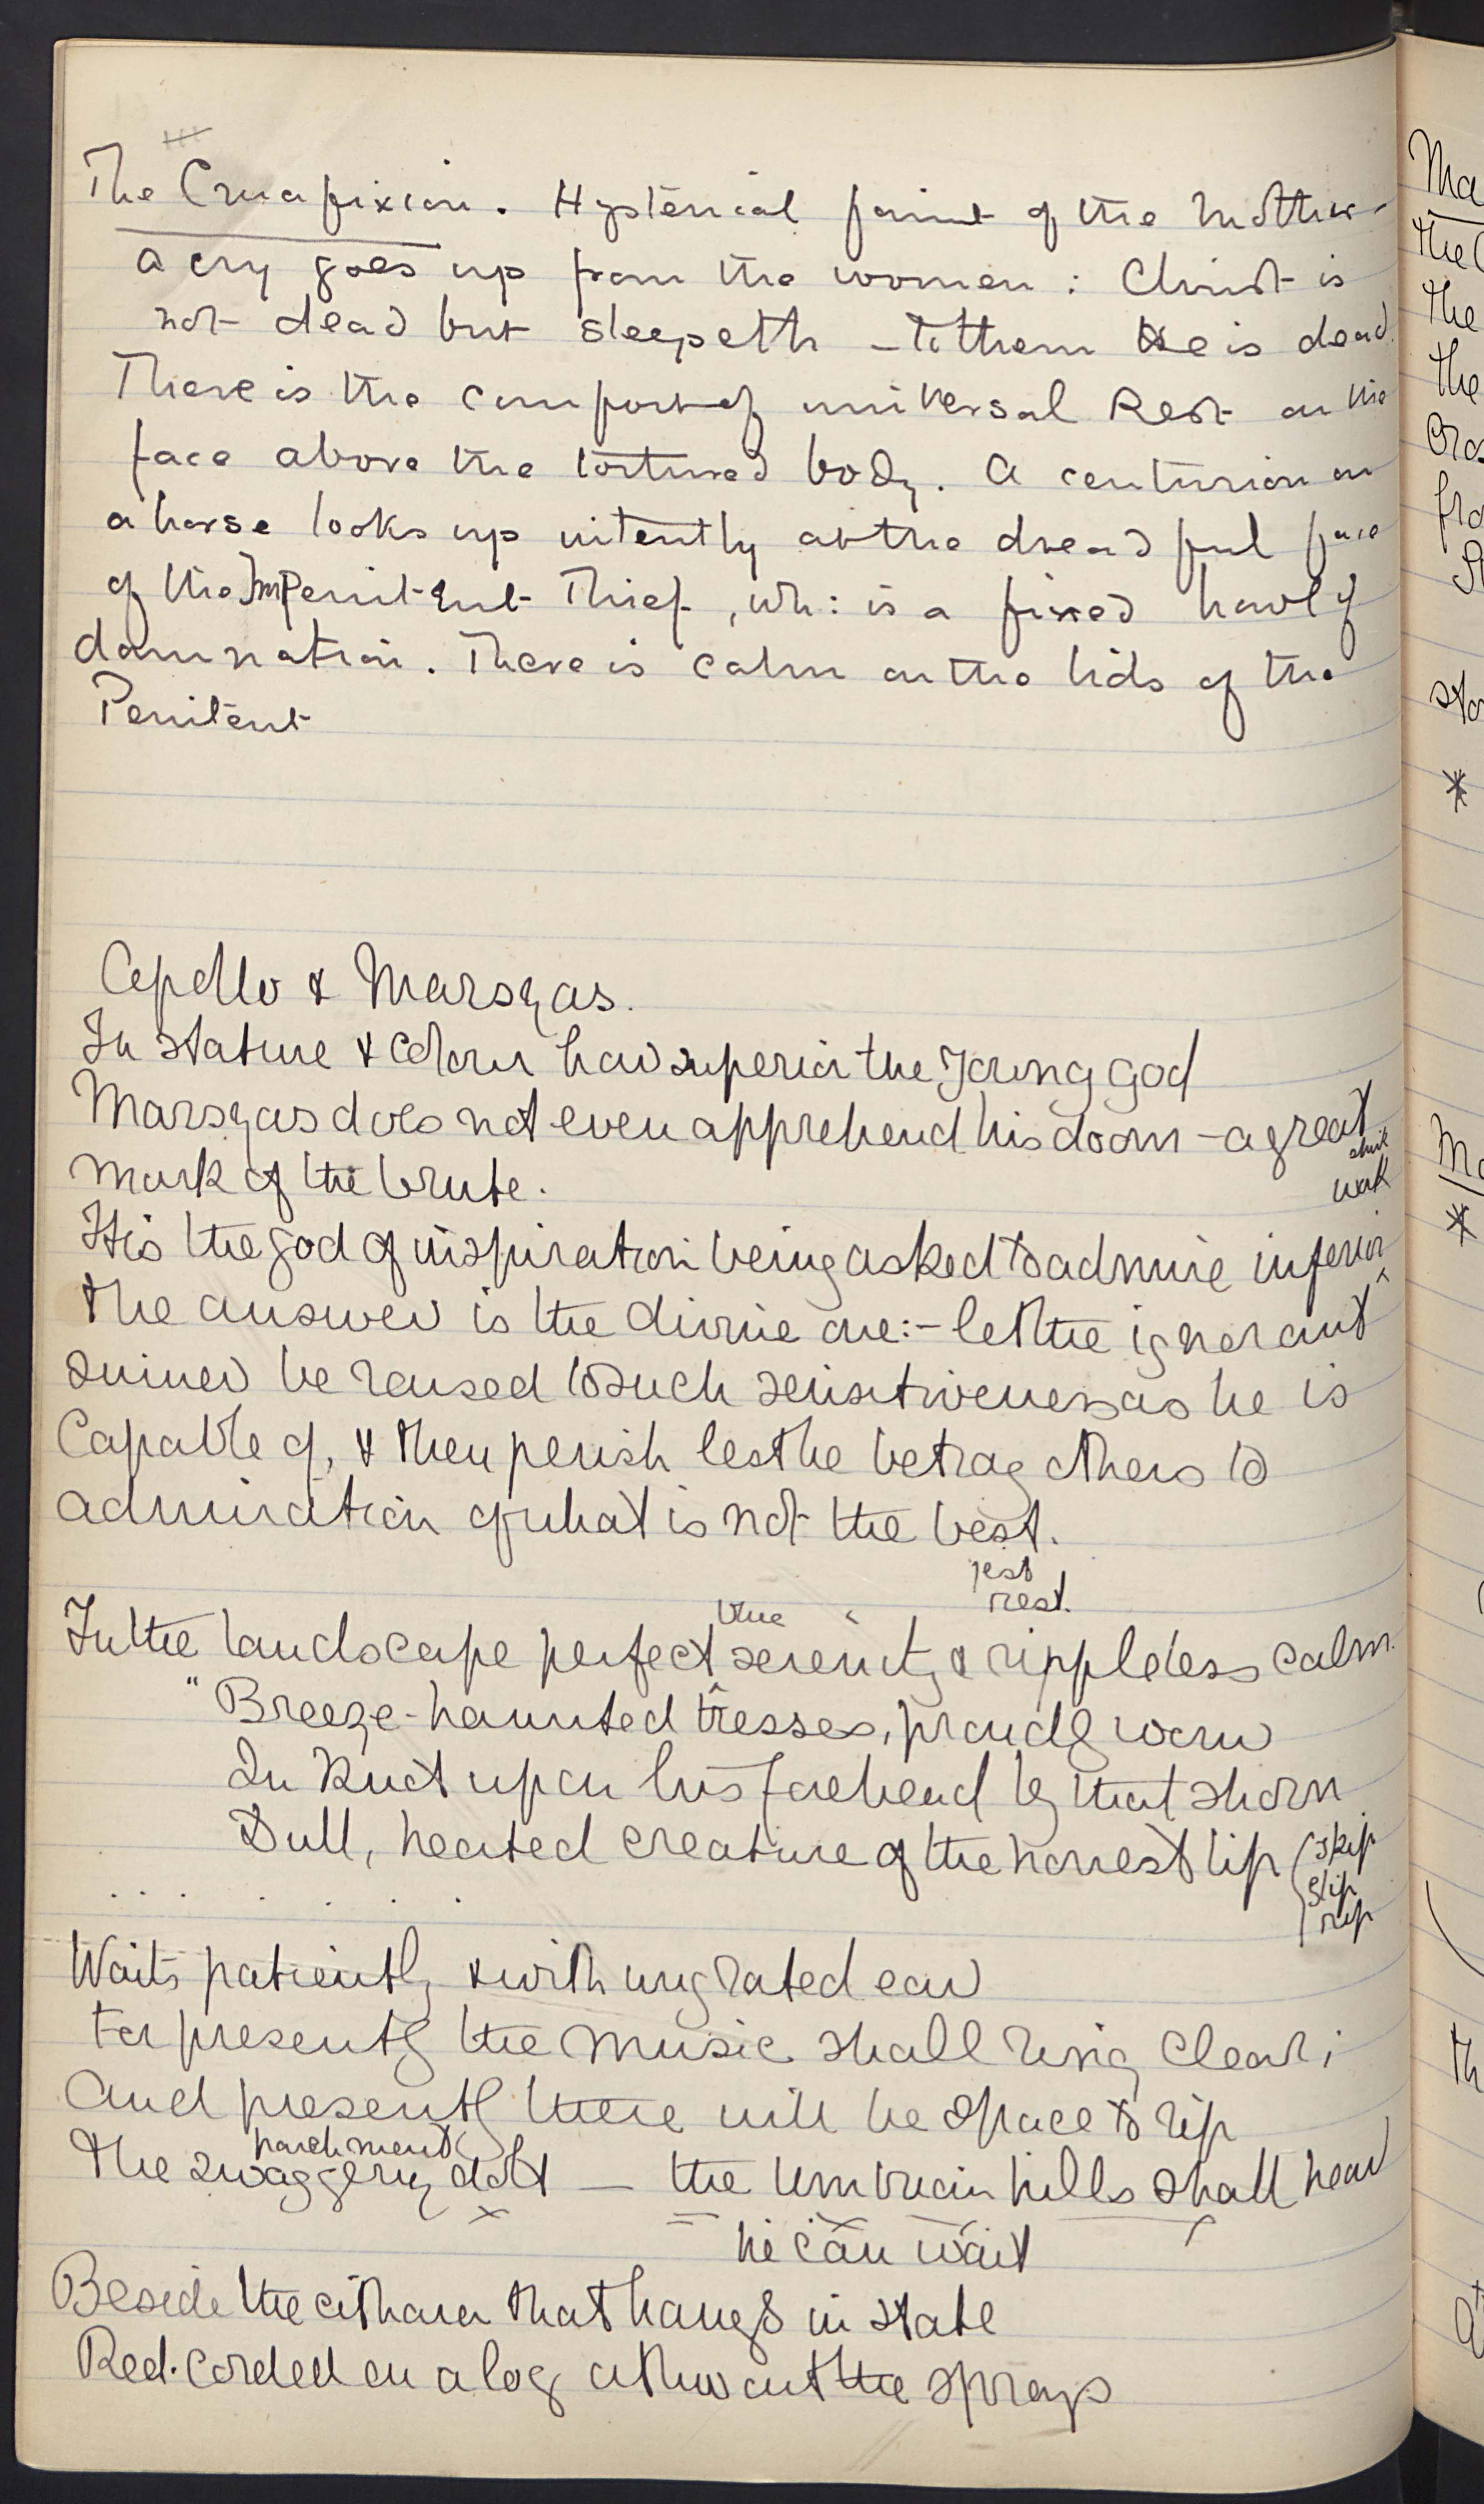 The Crucifixion. Hysterical faint of the Mother
a cry goes up from the women: Christ is
not dead but sleepeth – To them He is dead.
There is the comfort of universal Rest on the
face above the tortured body. A centurion on
a horse looks up intently at the dreadful face
of the ImPenitent Thief, wh: is a fixed howl of
damnation. There is calm on the lids of the
Penitent
Apollo & Marsyas.
In stature & colour how superior the young god
Marsyas does not even apprehend his doom – a great
mark of the brute.
work
It is the god of inspiration being asked to admire inferior
the answer is the divine one:– let the ignorant
sinner be roused to such sensitiveness as he is
capable of, & then perish lest he betray others to
admiration of what is not the best.
jest
rest.
blue
In the landscape perfect serenity & rippleless calm.
"Breeze-haunted tresses, proudly worn
In knot upon his forehead by that shorn
Dull, heated creature of the honest lip
(skip
slip
rip
. . . . . .
Waits patiently & with ungrated ear
For presently the music shall ring clear;
And presently there will be space to rip
parchment
The swaggery dolt — the Umbrian hills shall hear
he can wait
Beside the cithara that hangs in state
Red-corded on a log athwart the sprays
Ma
the C
the
the
Cros
fro
St
sta
*
Ma
*
th